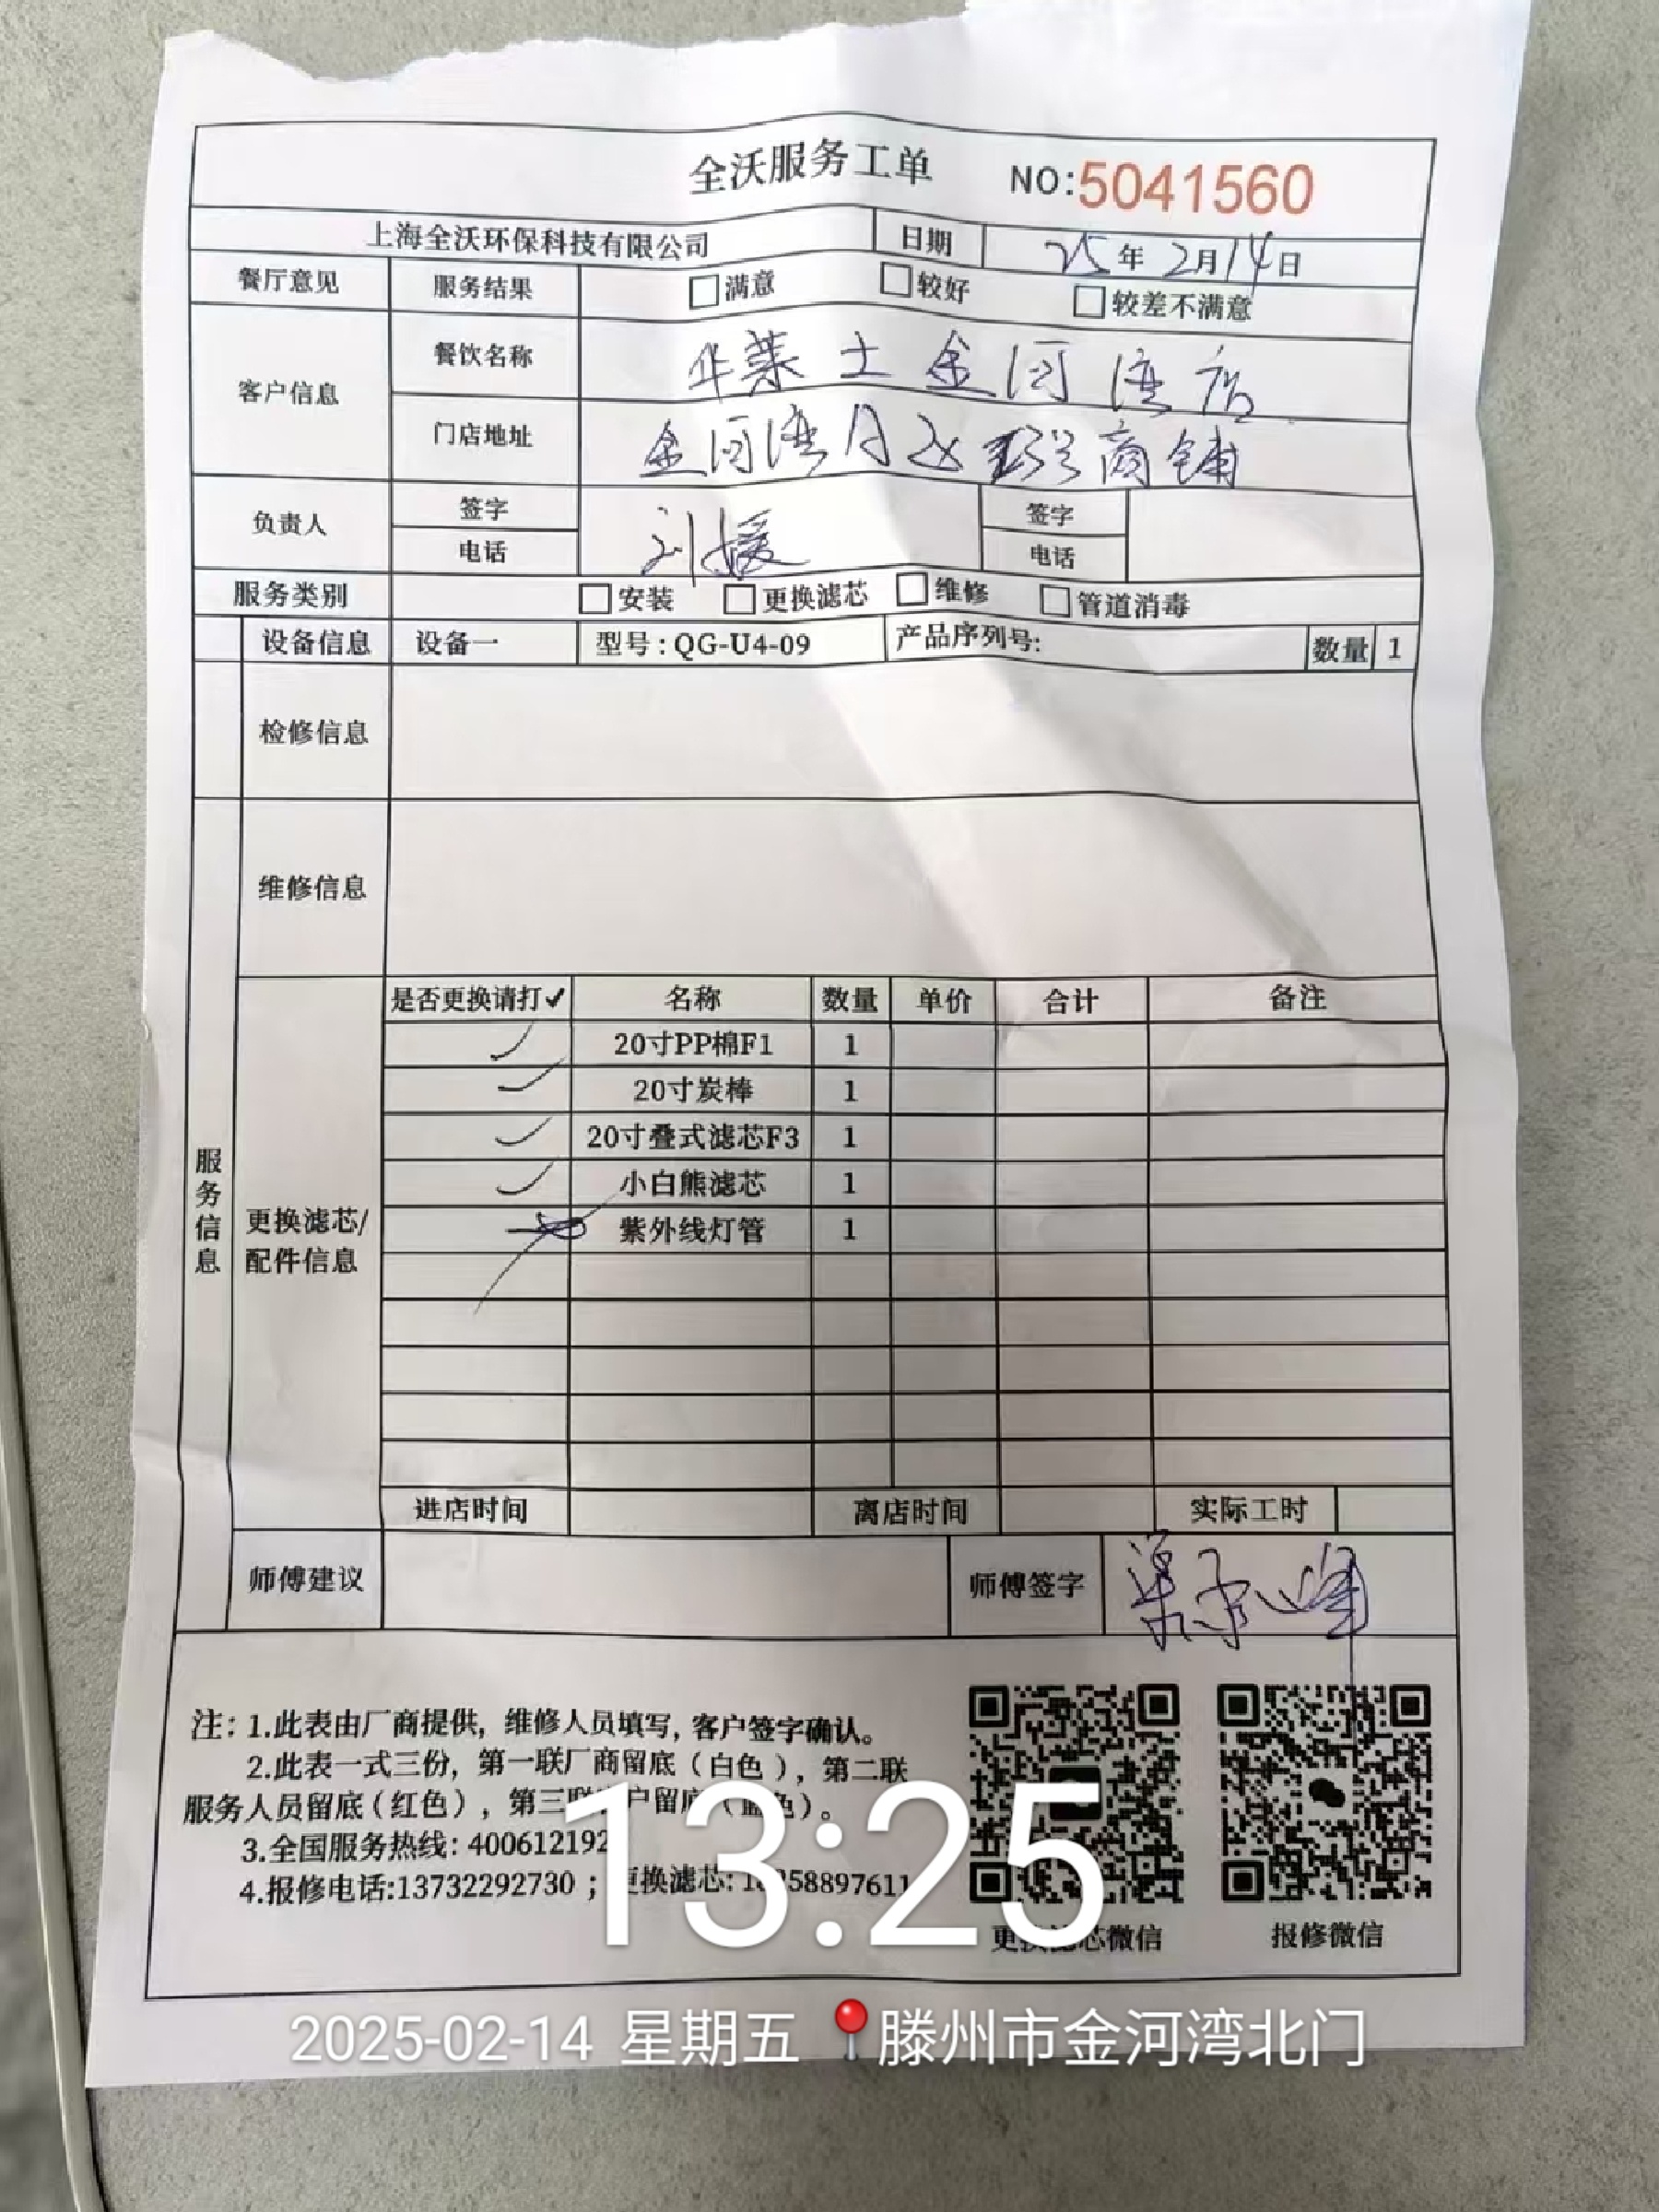 全沃服务工单 NO:5041560
上海全沃环保科技有限公司 日期 25年2月14日
餐厅意见 服务结果 □满意 □较好 □较差不满意
客户信息 餐饮名称 华莱士金河湾店
门店地址 金河湾A区 商铺
负责人 签字 刘媛 签字
电话 电话
服务类别 □安装 □更换滤芯 □维修 □管道消毒
设备信息 设备一 型号:QG-U4-09 产品序列号: 数量 1
检修信息
维修信息
服务信息
更换滤芯/配件信息
是否更换请打✓ 名称 数量 单价 合计 备注
✓ 20寸PP棉F1 1
✓ 20寸炭棒 1
✓ 20寸叠式滤芯F3 1
✓ 小白熊滤芯 1
紫外线灯管 1
进店时间 离店时间 实际工时
师傅建议 师傅签字
注: 1.此表由厂商提供, 维修人员填写, 客户签字确认。
2.此表一式三份, 第一联厂商留底(白色), 第二联
服务人员留底(红色), 第三联客户留底(蓝色)。
3.全国服务热线: 400612192
4.报修电话:13732292730 ; 更换滤芯: 58897611
更换滤芯微信 报修微信
13:25
2025-02-14 星期五 滕州市金河湾北门